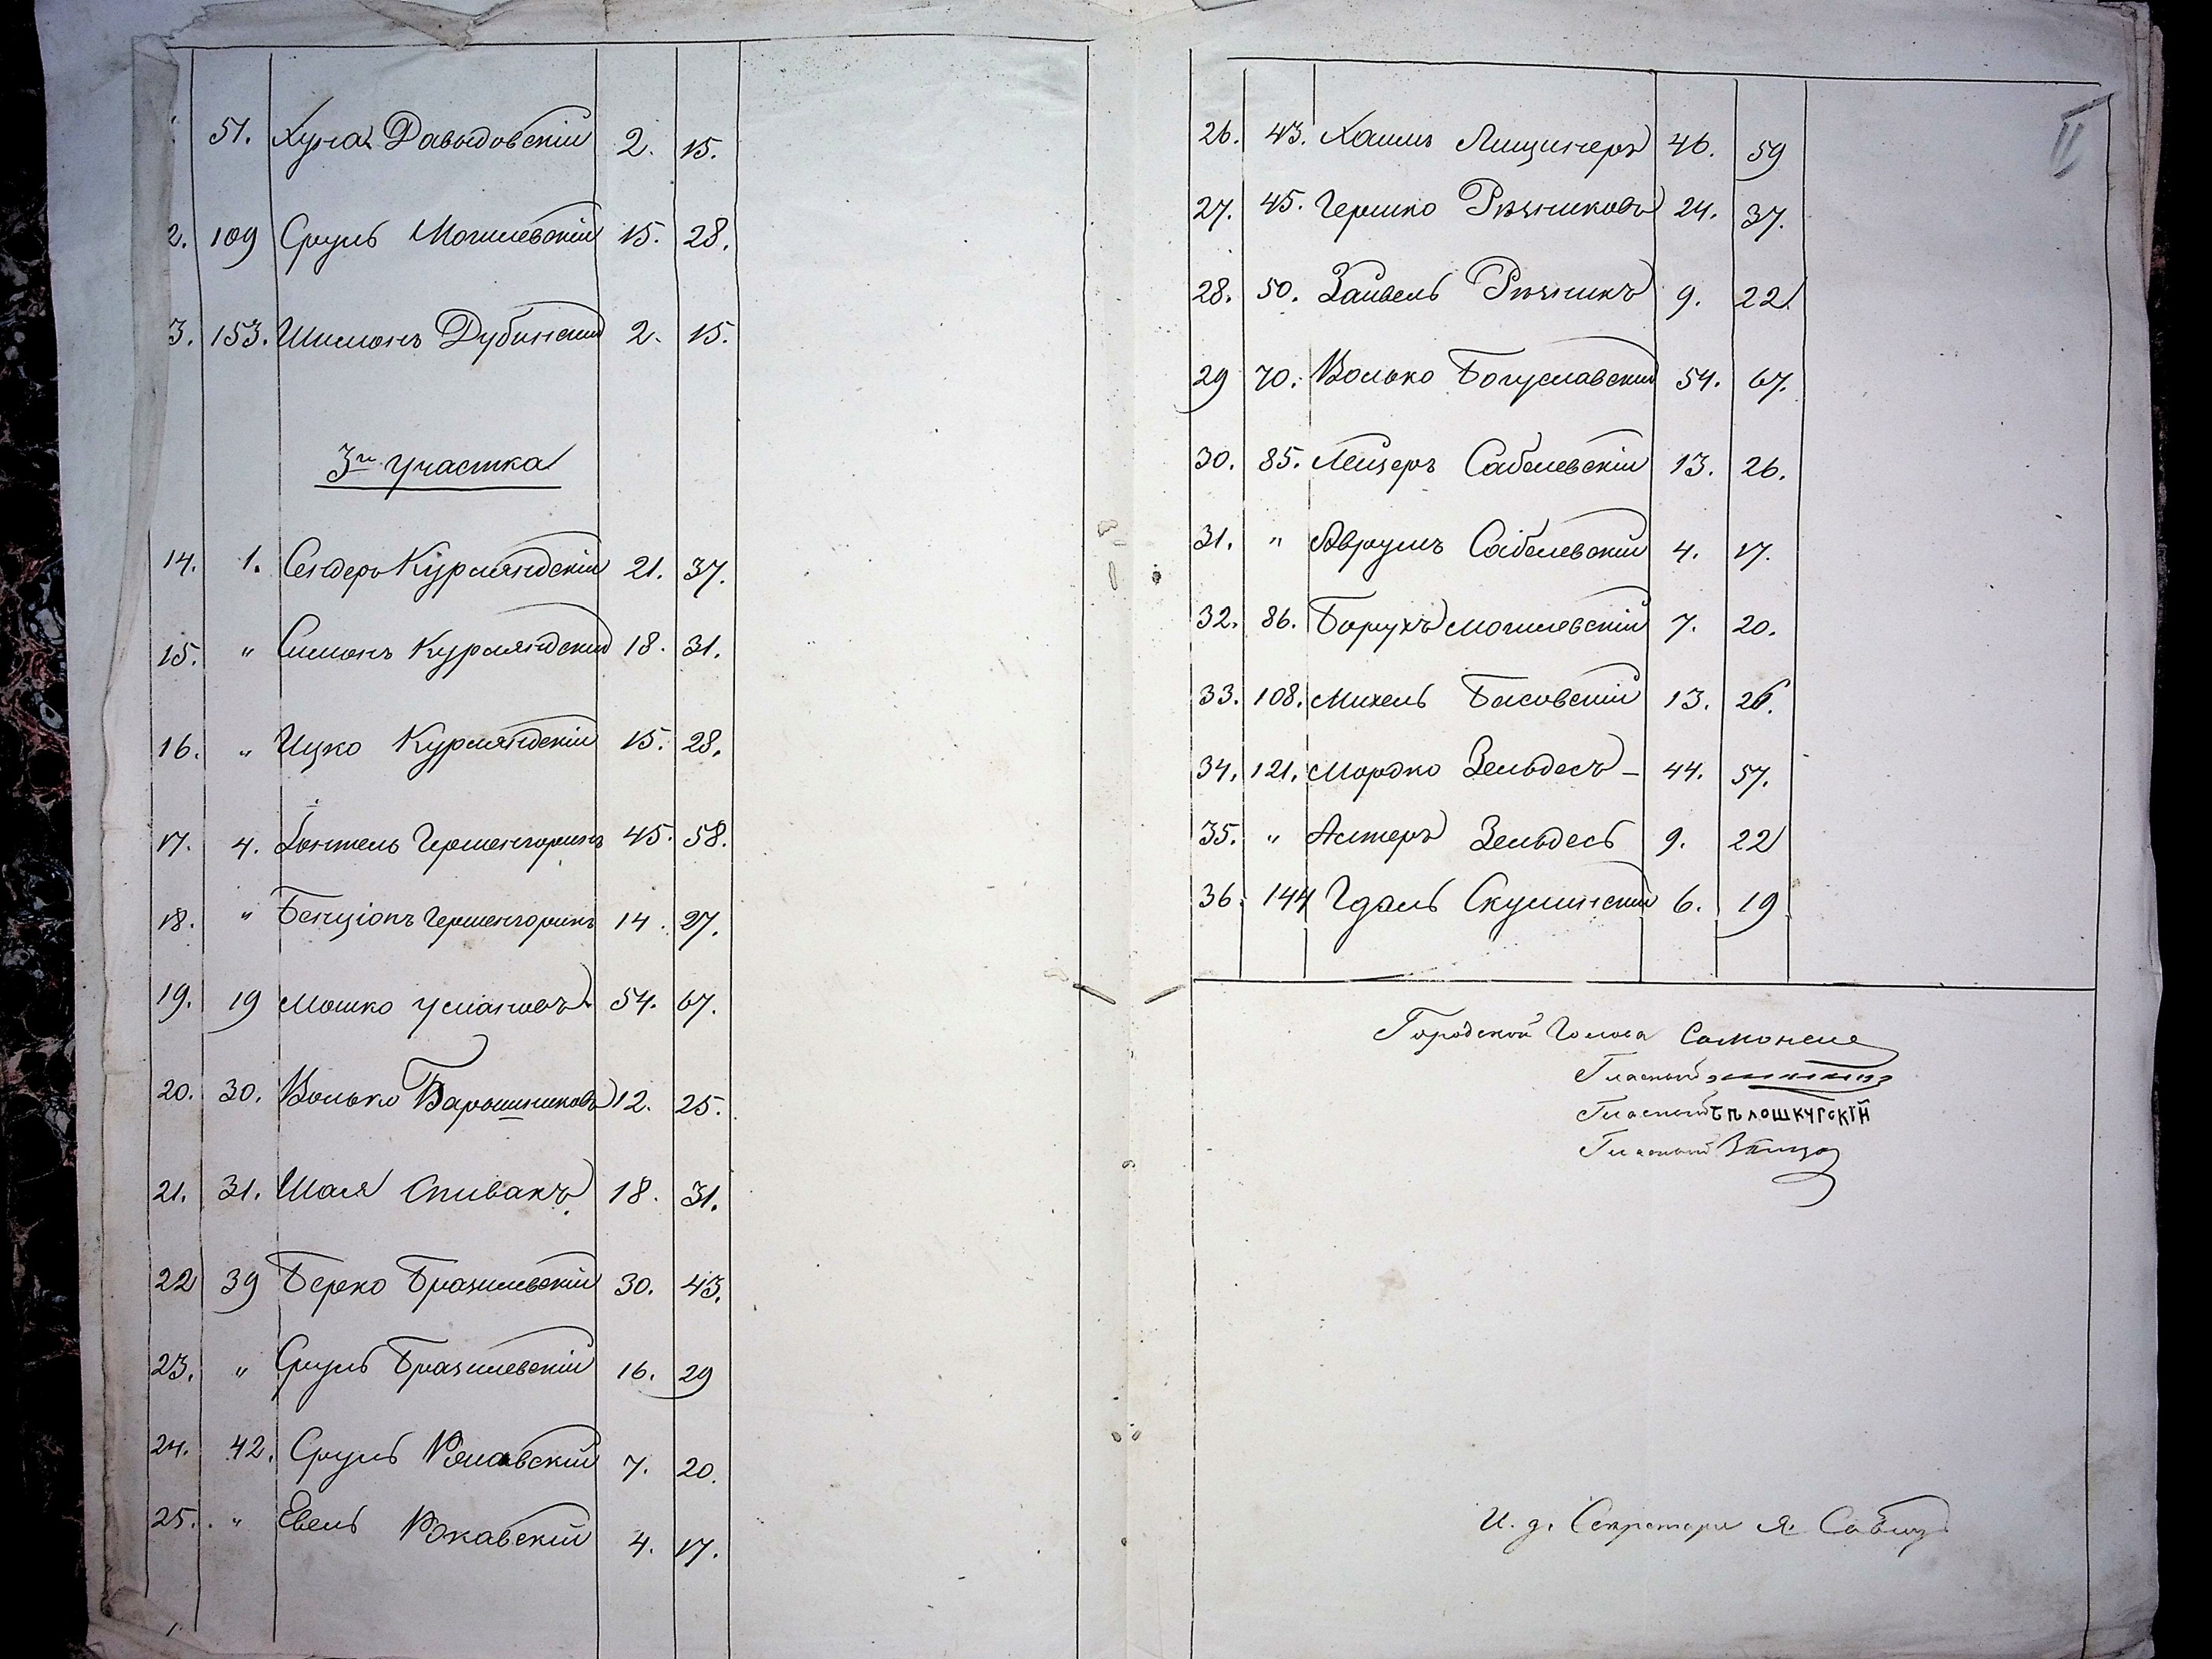 51. Хуна Давыдовскій 2. 15.
2. 109 Сруль Могилевскій 15. 28.
3. 153. Шимонъ Дубинскій 2. 15.
3го участка
14. 1. Сендеръ Курляндскій 21. 37.
15. " Симонъ Курляндскій 18. 31.
16. " Ицко Курляндскій 15. 28.
17. 4. 45. 58.
18. " Бенціонъ 14. 27.
19. 19 Мошко Усмановъ 54. 67.
20. 30. Волько Барышниковъ 12. 25.
21. 31. Шая Спивакъ 18. 31.
22 39 Берко Бразилевскій 30. 43.
23. " Сруль Бразилевскій 16. 29
24. 42. Сруль 7. 20.
25. " Евель 4. 17.
II
26. 43. Хаимъ Лищинеръ 46. 59
27. 45. Гершко Рѣзниковъ 24. 37.
28. 50. Зайвель Рѣзникъ 9. 22.
29 70. Волько Богуславскій 54. 67.
30. 85. Лейзеръ Сабелевскій 13. 26.
31. " Аврумъ Сабелевскій 4. 17.
32. 86. Борухъ Могилевскій 7. 20.
33. 108. Михель Басовскій 13. 26.
34. 121. Мордко Зельдесъ 44. 57.
35. " Зельдесъ 9. 22
36. 144 Гдаль Скулинскій 6. 19
Городской Голова
Гласный
Гласный Бѣлошкурскій
Гласный
И. д. Секретаря Я.